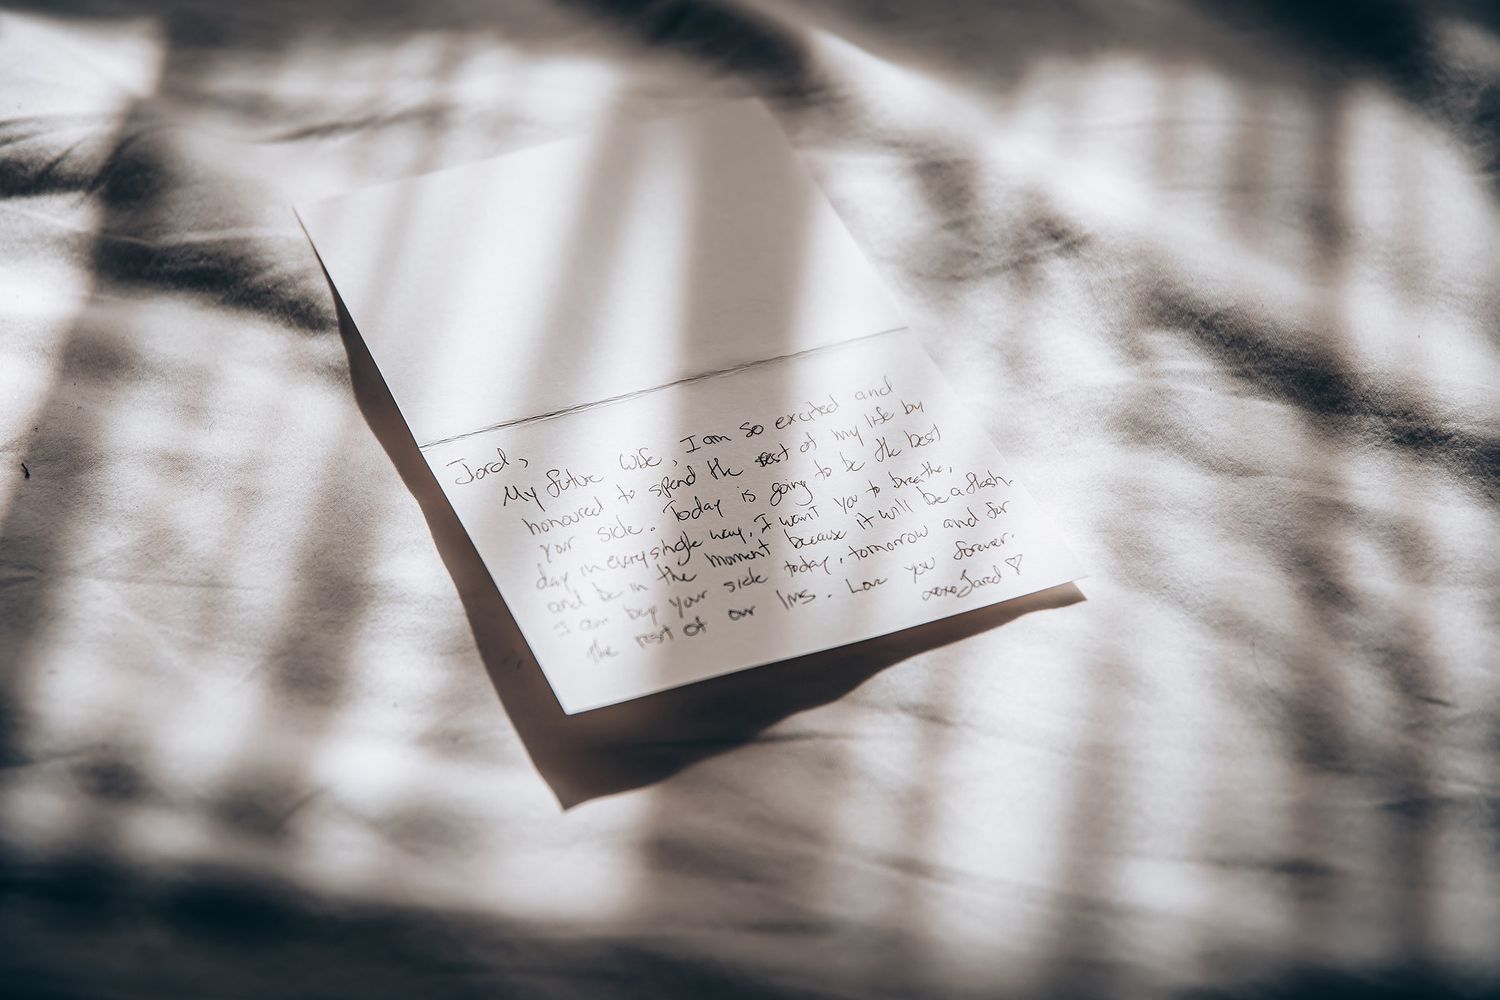 Jard,
My future wife, I am so excited and
honoured to spend the rest of my life by
your side. Today is going to be the best
day in every single way. I want you to breathe,
and be in the moment because it will be a flash.
I am by your side today, tomorrow and for
the rest of our lives. Love you forever.
xoxo Jared ♡